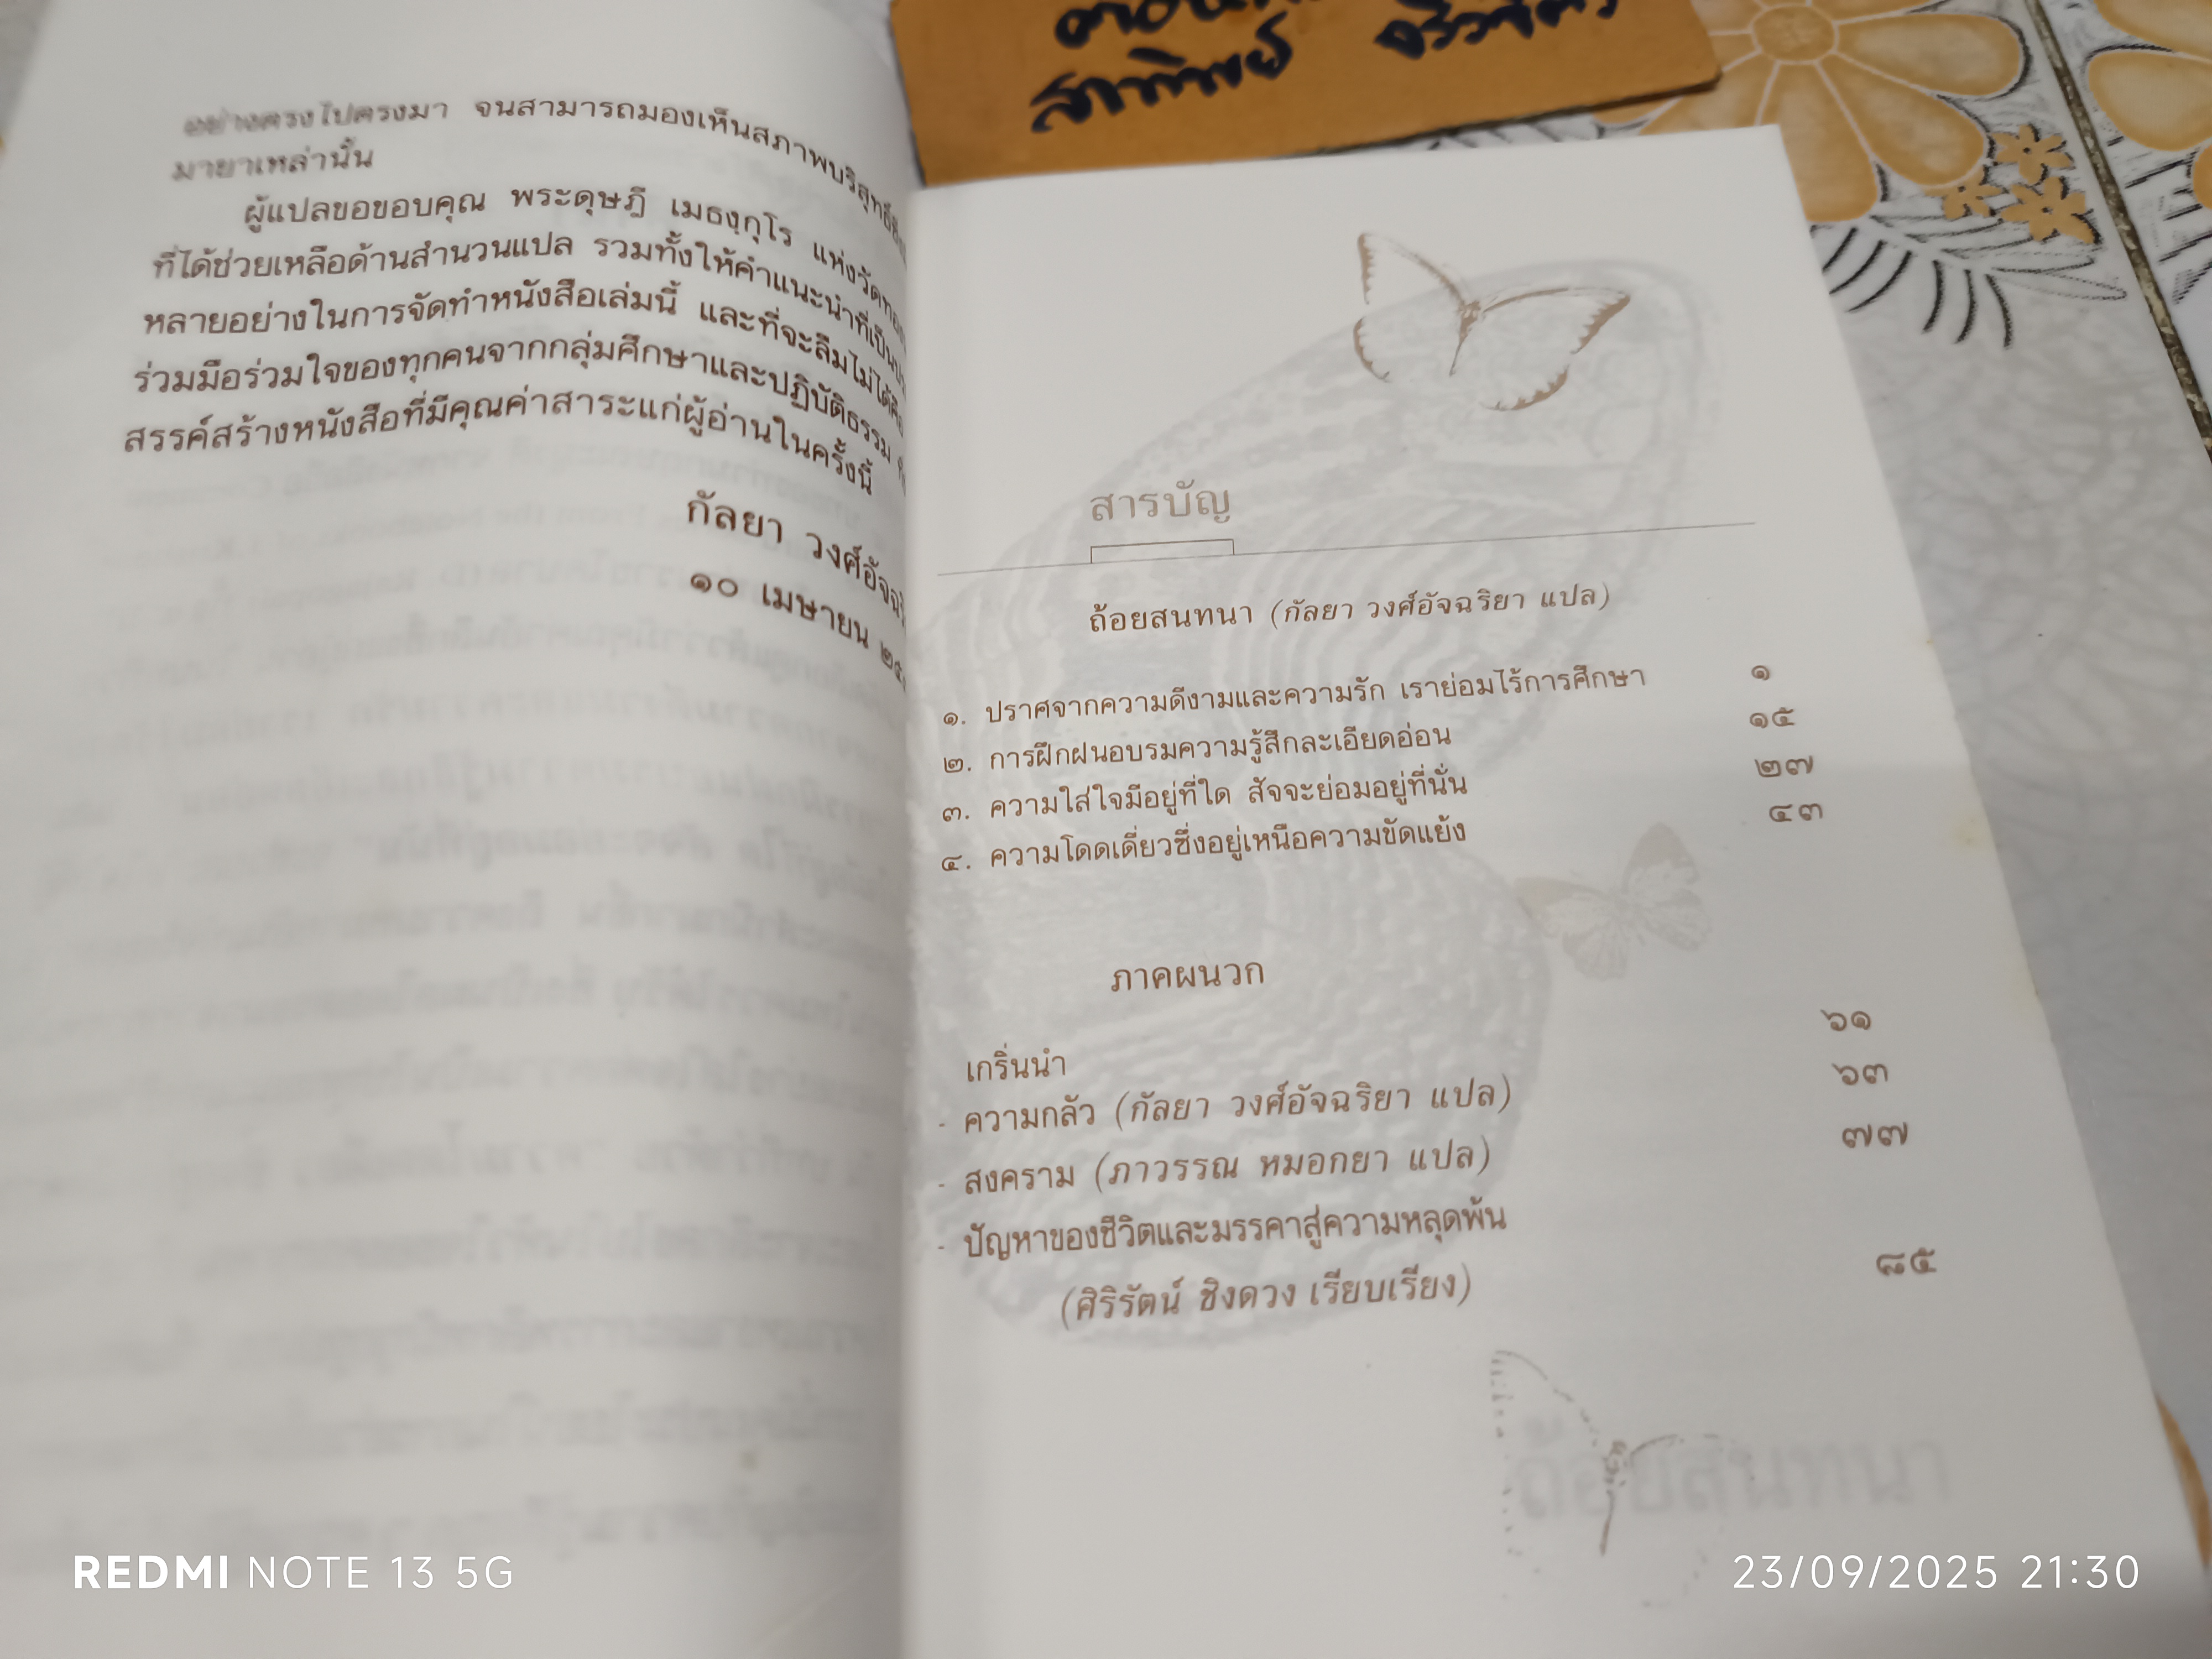 อย่างตรงไปตรงมา จนสามารถมองเห็นสภาพบริสุทธิ์
มายาเหล่านั้น
ผู้แปลขอขอบคุณ พระดุษฎี เมธงฺกุโร แห่งวัด
ที่ได้ช่วยเหลือด้านสำนวนแปล รวมทั้งให้คำแนะนำที่เป็น
หลายอย่างในการจัดทำหนังสือเล่มนี้ และที่จะลืมไม่ได้คือ
ร่วมมือร่วมใจของทุกคนจากกลุ่มศึกษาและปฏิบัติธรรม
สรรค์สร้างหนังสือที่มีคุณค่าสาระแก่ผู้อ่านในครั้งนี้
กัลยา วงศ์อัจฉ
๑๐ เมษายน ๒๕
สาทิพย์
สารบัญ
ถ้อยสนทนา (กัลยา วงศ์อัจฉริยา แปล)
๑. ปราศจากความดีงามและความรัก เราย่อมไร้การศึกษา ๑
๒. การฝึกฝนอบรมความรู้สึกละเอียดอ่อน ๑๕
๓. ความใส่ใจมีอยู่ที่ใด สัจจะย่อมอยู่ที่นั่น ๒๗
๔. ความโดดเดี่ยวซึ่งอยู่เหนือความขัดแย้ง ๔๓
ภาคผนวก
เกริ่นนำ ๖๑
- ความกลัว (กัลยา วงศ์อัจฉริยา แปล) ๖๓
- สงคราม (ภาวรรณ หมอกยา แปล) ๗๗
- ปัญหาของชีวิตและมรรคาสู่ความหลุดพ้น
(ศิริรัตน์ ชิงดวง เรียบเรียง) ๘๕
ถ้อยสนทนา
REDMI NOTE 13 5G
23/09/2025 21:30